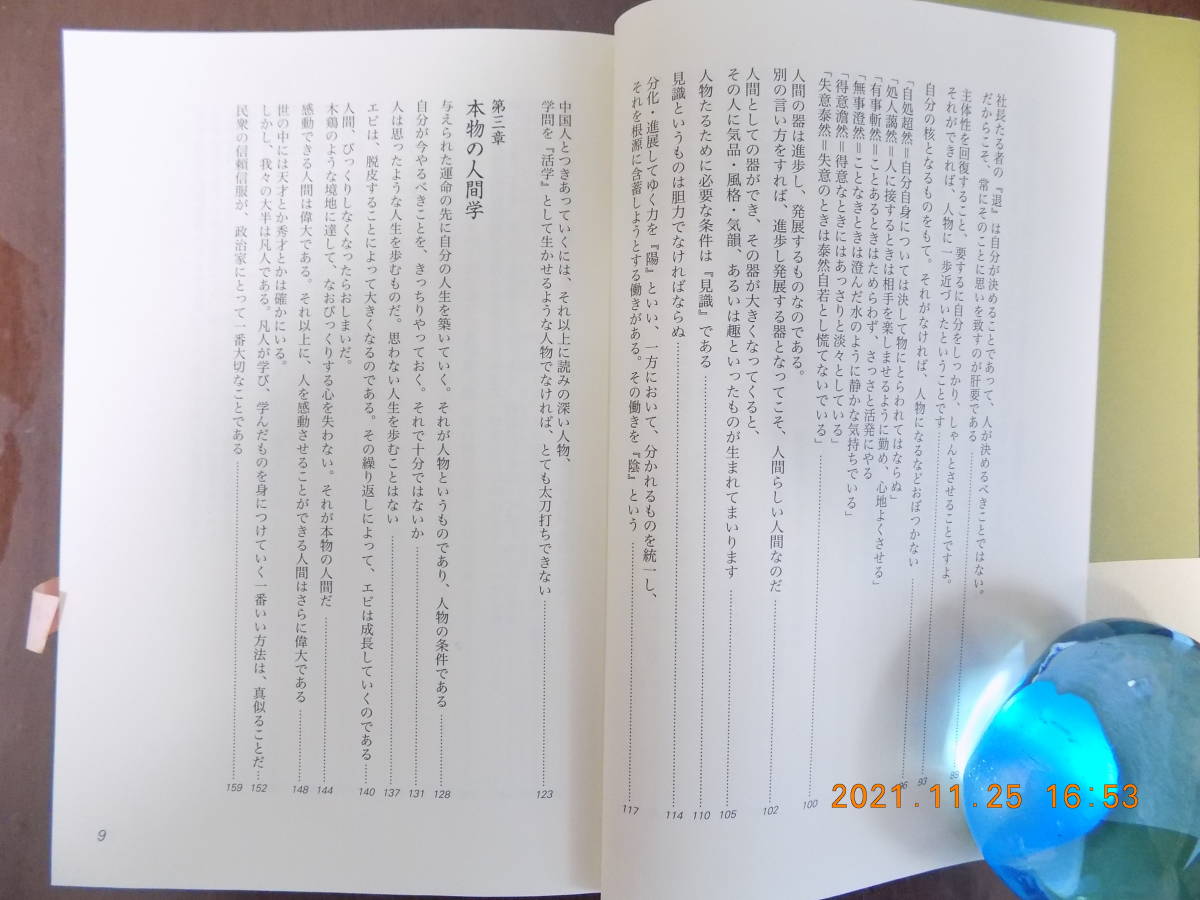 社長たる者の『退』は自分が決めることであって、人が決めるべきことではない。
だからこそ、常にそのことに思いを致すのが肝要である
主体性を回復すること、要するに自分をしっかり、しゃんとさせることですよ。
それができれば、人物に一歩近づいたということです 93
自分の核となるものをもて。それがなければ、人物になるなどおぼつかない
「自処超然＝自分自身については決して物にとらわれてはならぬ」
「処人藹然＝人に接するときは相手を楽しませるように勤め、心地よくさせる」
「有事斬然＝ことあるときはためらわず、さっさと活発にやる
「無事澄然＝ことなきときは澄んだ水のように静かな気持ちでいる」
「得意澹然＝得意なときにはあっさりと淡々としている」
「失意泰然＝失意のときは泰然自若とし慌てないでいる」 100
人間の器は進歩し、発展するものなのである。
別の言い方をすれば、進歩し発展する器となってこそ、人間らしい人間なのだ 102
人間としての器ができ、その器が大きくなってくると、
その人に気品・風格・気韻、あるいは趣といったものが生まれてまいります 105
人物たるために必要な条件は『見識』である 110
見識というものは胆力でなければならぬ 114
分化・進展してゆく力を『陽』といい、一方において、分かれるものを統一し、
それを根源に含蓄しようとする働きがある。その働きを『陰』という 117
中国人とつきあっていくには、それ以上に読みの深い人物、
学問を『活学』として生かせるような人物でなければ、とても太刀打ちできない 123
第三章
本物の人間学
与えられた運命の先に自分の人生を築いていく。それが人物というものであり、人物の条件である 128
自分が今やるべきことを、きっちりやっておく。それで十分ではないか 131
人は思ったような人生を歩むものだ。思わない人生を歩むことはない 137
エビは、脱皮することによって大きくなるのである。その繰り返しによって、エビは成長していくのである 140
人間、びっくりしなくなったらおしまいだ。
木鶏のような境地に達して、なおびっくりする心を失わない。それが本物の人間だ 144
感動できる人間は偉大である。それ以上に、人を感動させることができる人間はさらに偉大である 148
世の中には天才とか秀才とかは確かにいる。
しかし、我々の大半は凡人である。凡人が学び、学んだものを身につけていく一番いい方法は、真似ることだ 152
民衆の信頼信服が、政治家にとって一番大切なことである 159
9
2021.11.25 16:53